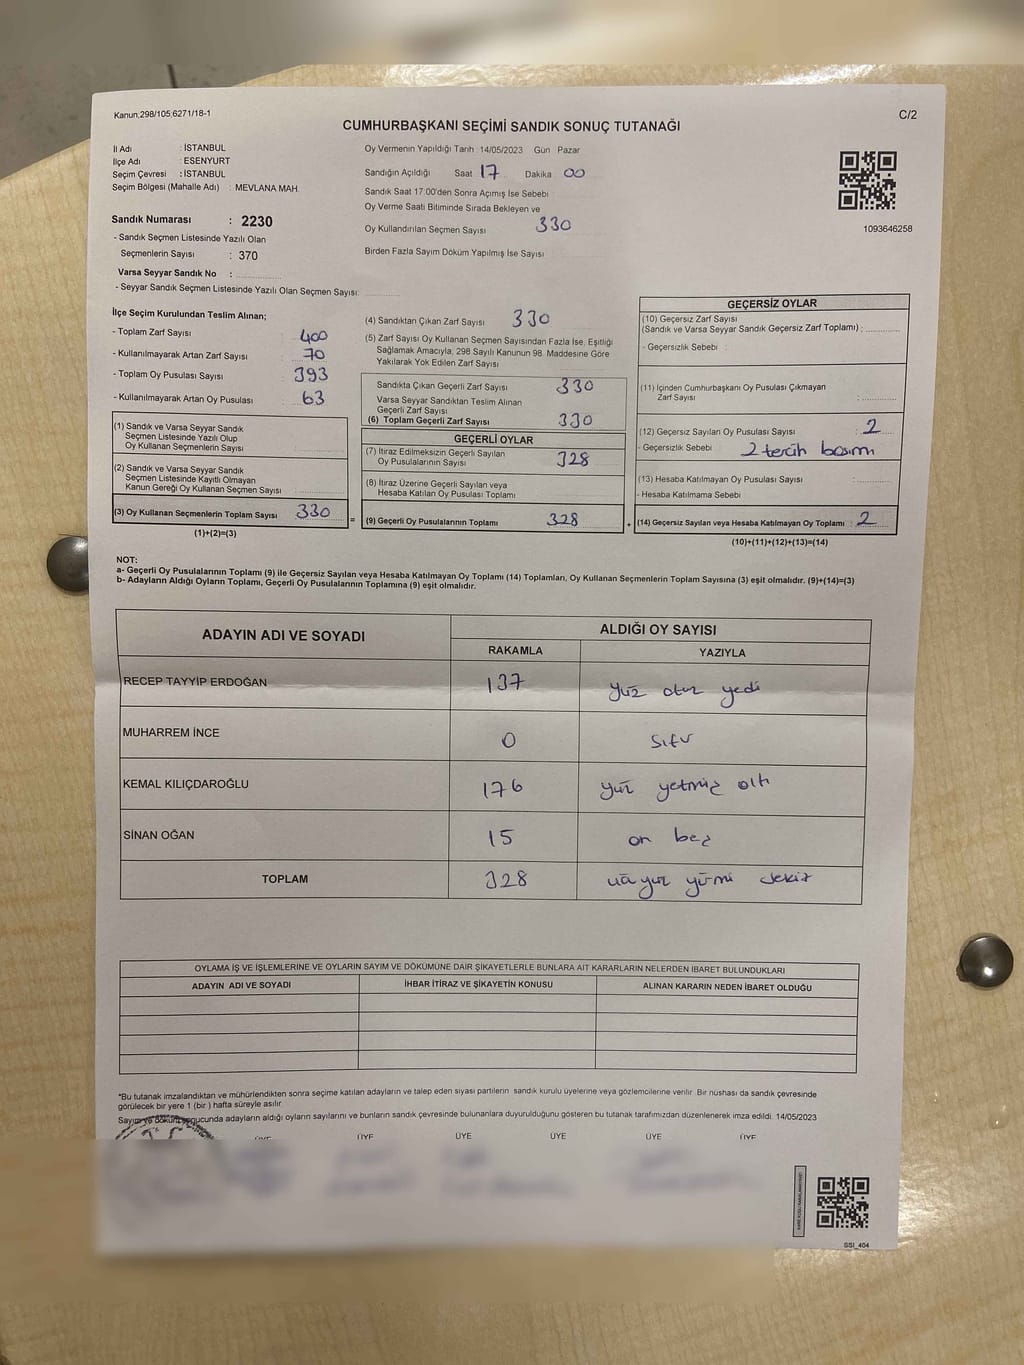 Kanun,298/105;6271/18-1
C/2
CUMHURBAŞKANI SEÇİMİ SANDIK SONUÇ TUTANAĞI
İl Adı : İSTANBUL
İlçe Adı : ESENYURT
Seçim Çevresi : İSTANBUL
Seçim Bölgesi (Mahalle Adı) : MEVLANA MAH.
Sandık Numarası : 2230
- Sandık Seçmen Listesinde Yazılı Olan
Seçmenlerin Sayısı : 370
Varsa Seyyar Sandık No :
- Seyyar Sandık Seçmen Listesinde Yazılı Olan Seçmen Sayısı:
Oy Vermenin Yapıldığı Tarih : 14/05/2023 Gün Pazar
Sandığın Açıldığı Saat 17 Dakika 00
Sandık Saat 17:00'den Sonra Açımış İse Sebebi
Oy Verme Saati Bitiminde Sırada Bekleyen ve
Oy Kullandırılan Seçmen Sayısı 330
Birden Fazla Sayım Döküm Yapılmış İse Sayısı
1093646258
İlçe Seçim Kurulundan Teslim Alınan;
- Toplam Zarf Sayısı 400
- Kullanılmayarak Artan Zarf Sayısı 70
- Toplam Oy Pusulası Sayısı 393
- Kullanılmayarak Artan Oy Pusulası 63
(1) Sandık ve Varsa Seyyar Sandık
Seçmen Listesinde Yazılı Olup
Oy Kullanan Seçmenlerin Sayısı
(2) Sandık ve Varsa Seyyar Sandık
Seçmen Listesinde Kayıtlı Olmayan
Kanun Gereği Oy Kullanan Seçmen Sayısı
(3) Oy Kullanan Seçmenlerin Toplam Sayısı 330
(1)+(2)=(3)
=
(4) Sandıktan Çıkan Zarf Sayısı 330
(5) Zarf Sayısı Oy Kullanan Seçmen Sayısından Fazla İse, Eşitliği
Sağlamak Amacıyla, 298 Sayılı Kanunun 98. Maddesine Göre
Yakılarak Yok Edilen Zarf Sayısı
Sandıkta Çıkan Geçerli Zarf Sayısı 330
Varsa Seyyar Sandıktan Teslim Alınan
Geçerli Zarf Sayısı
(6) Toplam Geçerli Zarf Sayısı 330
GEÇERLİ OYLAR
(7) İtiraz Edilmeksizin Geçerli Sayılan
Oy Pusulalarının Sayısı 328
(8) İtiraz Üzerine Geçerli Sayılan veya
Hesaba Katılan Oy Pusulası Toplamı
(9) Geçerli Oy Pusulalarının Toplamı 328
+
GEÇERSİZ OYLAR
(10) Geçersiz Zarf Sayısı
(Sandık ve Varsa Seyyar Sandık Geçersiz Zarf Toplamı) :
- Geçersizlik Sebebi :
(11) İçinden Cumhurbaşkanı Oy Pusulası Çıkmayan
Zarf Sayısı :
(12) Geçersiz Sayılan Oy Pusulası Sayısı : 2
- Geçersizlik Sebebi : 2 tercih basımı
(13) Hesaba Katılmayan Oy Pusulası Sayısı :
- Hesaba Katılmama Sebebi
(14) Geçersiz Sayılan veya Hesaba Katılmayan Oy Toplamı : 2
(10)+(11)+(12)+(13)=(14)
NOT:
a- Geçerli Oy Pusulalarının Toplamı (9) ile Geçersiz Sayılan veya Hesaba Katılmayan Oy Toplamı (14) Toplamları, Oy Kullanan Seçmenlerin Toplam Sayısına (3) eşit olmalıdır. (9)+(14)=(3)
b- Adayların Aldığı Oyların Toplamı, Geçerli Oy Pusulalarının Toplamına (9) eşit olmalıdır.
ADAYIN ADI VE SOYADI ALDIĞI OY SAYISI
RAKAMLA YAZIYLA
RECEP TAYYİP ERDOĞAN 137 yüz otuz yedi
MUHARREM İNCE 0 Sıfır
KEMAL KILIÇDAROĞLU 176 yüz yetmiş altı
SİNAN OĞAN 15 on beş
TOPLAM 328 üçyüz yirmi sekiz
OYLAMA İŞ VE İŞLEMLERİNE VE OYLARIN SAYIM VE DÖKÜMÜNE DAİR ŞİKAYETLERLE BUNLARA AİT KARARLARIN NELERDEN İBARET BULUNDUKLARI
ADAYIN ADI VE SOYADI İHBAR İTİRAZ VE ŞİKAYETİN KONUSU ALINAN KARARIN NEDEN İBARET OLDUĞU
*Bu tutanak imzalandıktan ve mühürlendikten sonra seçime katılan adayların ve talep eden siyasi partilerin sandık kurulu üyelerine veya gözlemcilerine verilir. Bir nüshası da sandık çevresinde
görülecek bir yere 1 (bir ) hafta süreyle asılır.
Sayım ve döküm sonucunda adayların aldığı oyların sayılarını ve bunların sandık çevresinde bulunanlara duyurulduğunu gösteren bu tutanak tarafımızdan düzenlenerek imza edildi. 14/05/2023
ÜYE ÜYE ÜYE ÜYE ÜYE ÜYE
SSI_404